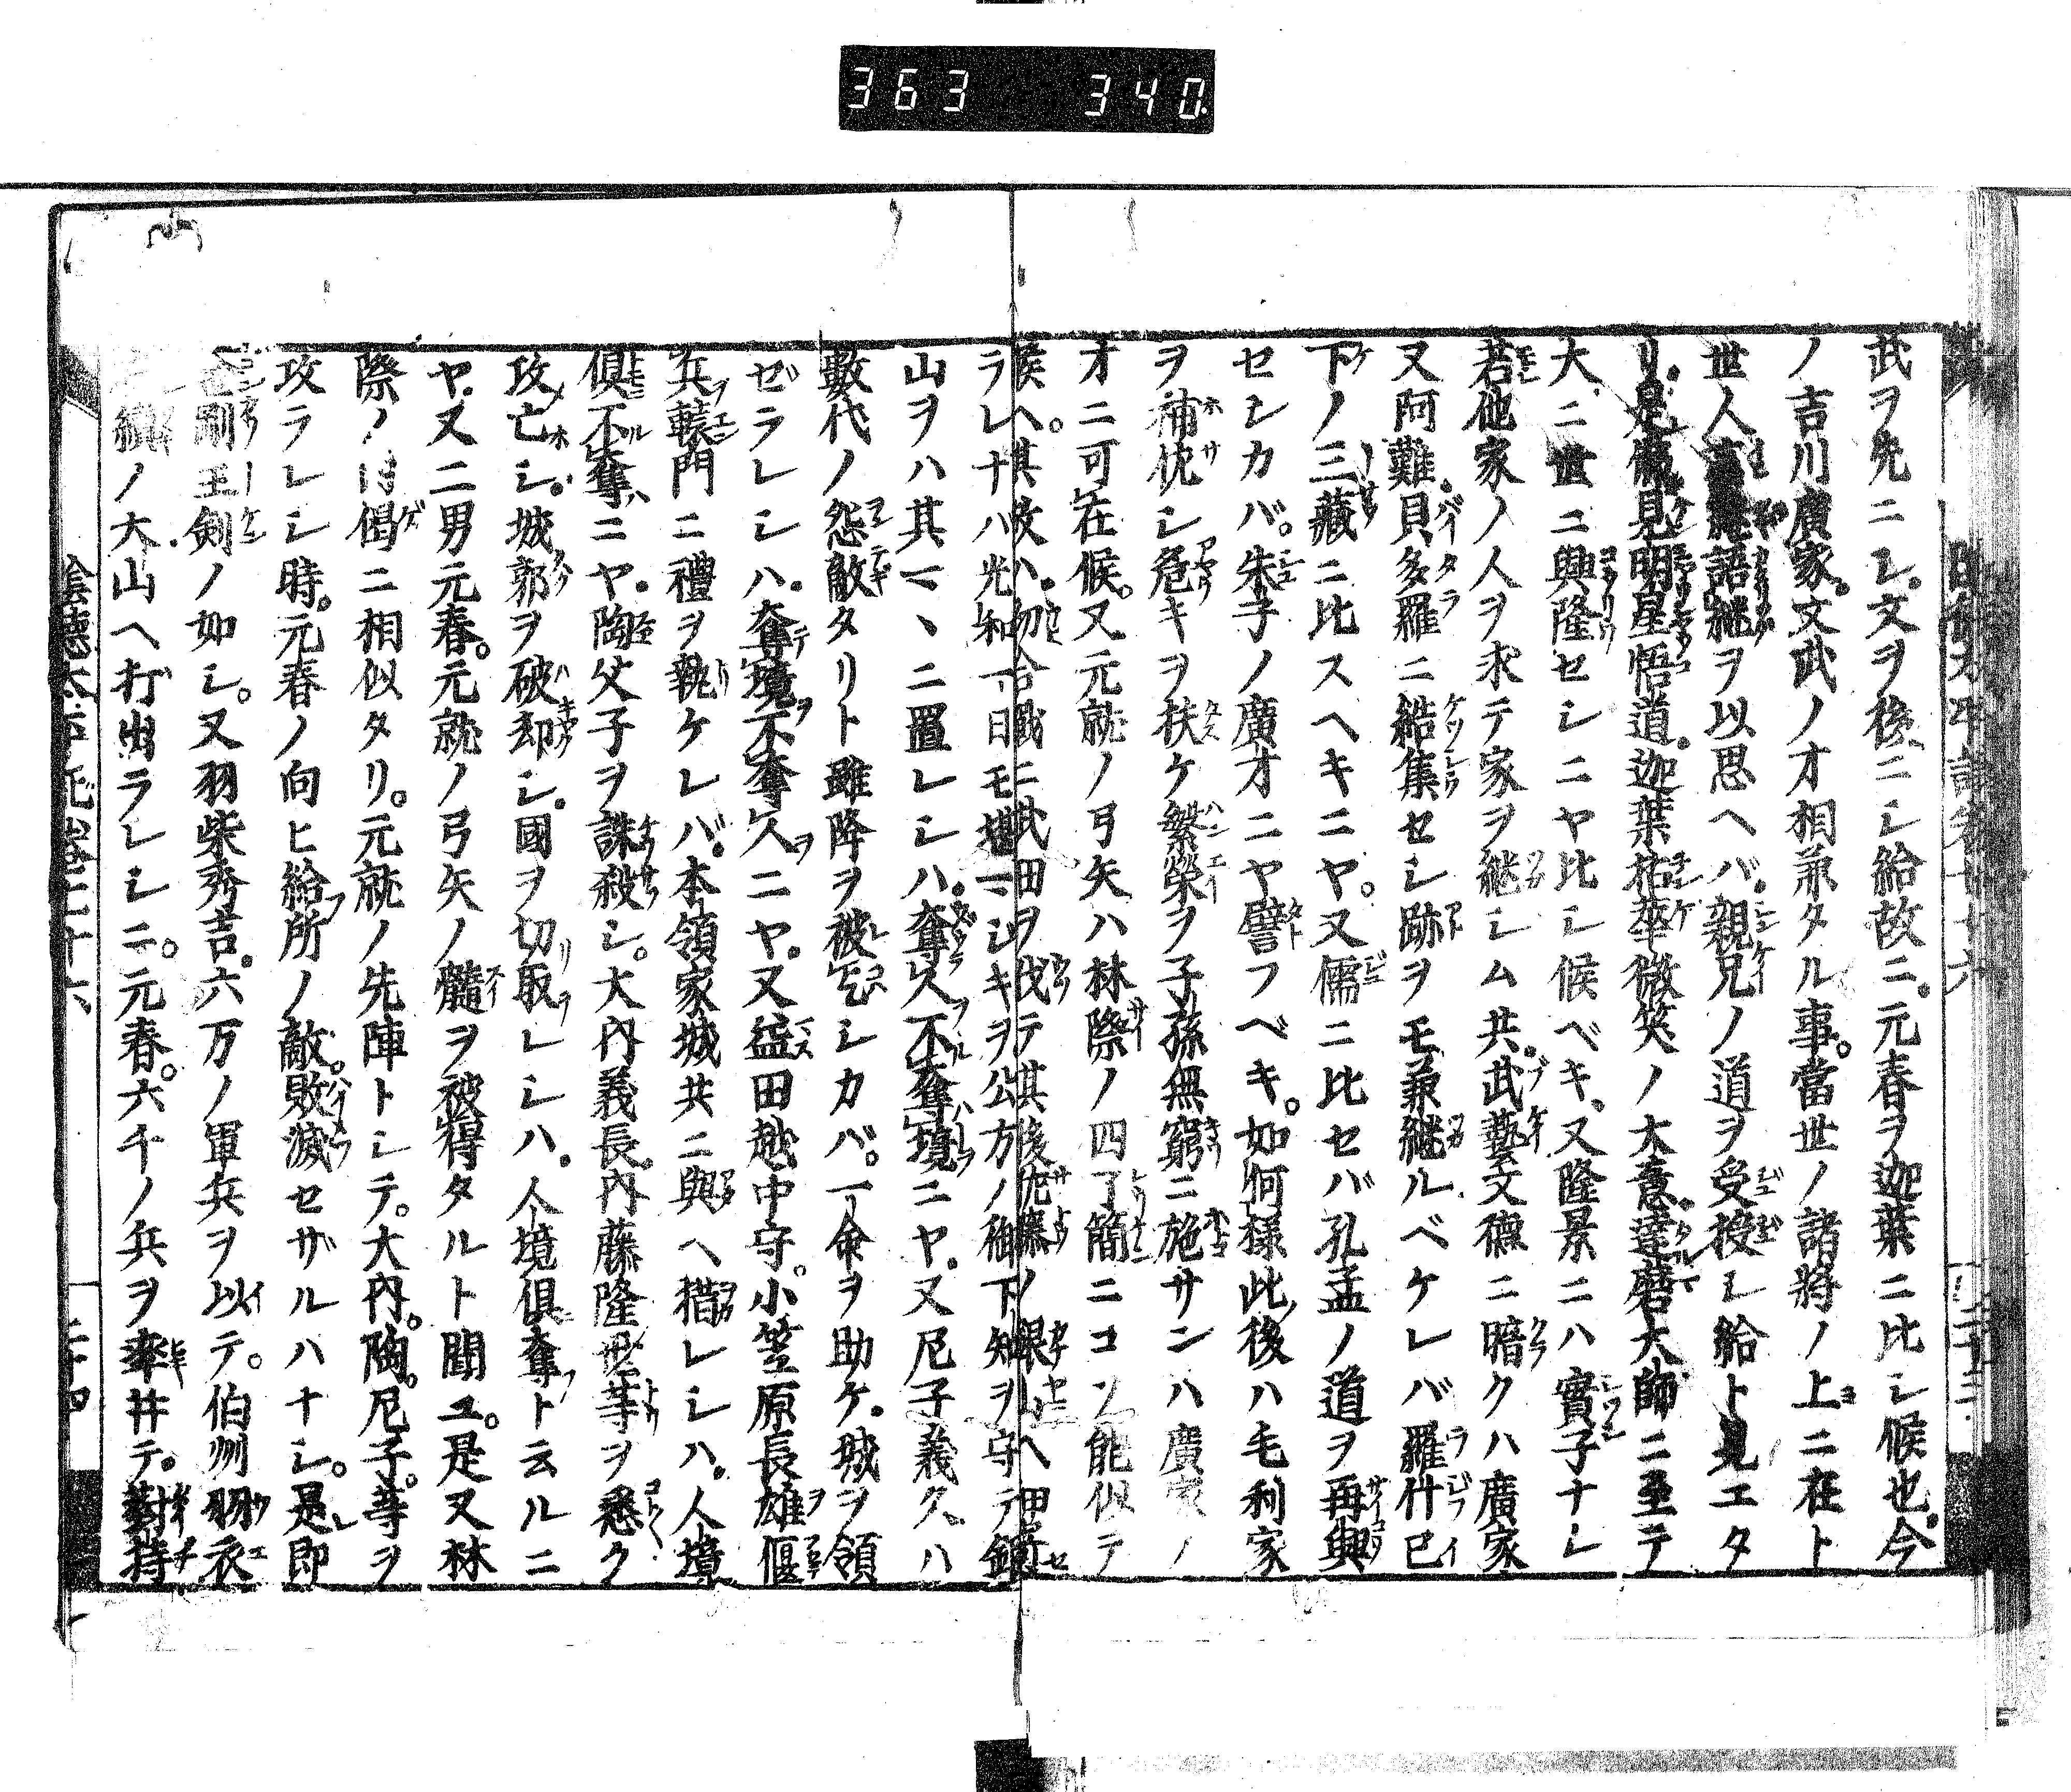 363 340
武ヲ先ニシ。文ヲ後ニシ給故ニ。元春ヲ迦葉ニ比シ候也。今
ノ吉川廣家。文武ノオ相兼タル事。當世ノ諸將ノ上ニ在ト
世人語継ヲ以思ヘバ。親兄ノ道ヲ受授シ給ト見エタ
リ。是見明星悟道。迦葉拈華微笑ノ大意。達磨大師ニ至テ
大ニ世ニ興隆セシニヤ比シ候ベキ。又隆景ニハ實子ナレ
若他家ノ人ヲ求テ家ヲ継シム共。武藝文德ニ暗クハ廣家
又阿難。貝多羅ニ結集セシ跡ヲモ兼継ルベケレバ羅什已
下ノ三藏ニ比スヘキニヤ。又儒ニ比セバ孔孟ノ道ヲ再興
セシカバ。朱子ノ廣才ニヤ譬フベキ。如何樣此後ハ毛利家
ヲ補佐シ危キヲ扶ケ繁榮ヲ子孫無窮ニ施サンハ廣家ノ
オニ可在候。又元就ノ弓矢ハ林際ノ四了簡ニコソ能似テ
候ヘ。其故ハ。初合戰ニ武田ヲ伐テ其後佐藤ノ銀山ヘ押寄
ラレナハ光和一日モ堪ニシキヲ公方ノ御下知ヲ守テ銀
山ヲハ其ママニ置レシハ。奪人不奪境ニヤ。又尼子義久ハ
數代ノ怨敵タリト雖降ヲ被乞シカバ。一命ヲ助ケ。城ヲ領
ゼラレシハ。奪境不奪人ニヤ。又益田越中守。小笠原長雄偃
兵轅門ニ禮ヲ執ケレバ。本領家城共ニ與ヘ猎レシハ。人境
俱不奪ニヤ。陶父子ヲ誅殺シ。大內義長。內藤隆世等ヲ悉ク
攻亡シ。城郭ヲ破却シ。國ヲ切取レシハ。人境俱奪ト云ルニ
ヤ。又二男元春。元就ノ弓矢ノ髓ヲ被得タルト聞ユ。是又林
際ノ偈ニ相似タリ。元就ノ先陣トシテ。大內。陶。尼子。等ヲ
攻ラレシ時。元春ノ向ヒ給所ノ敵。敗滅セザルハナシ。是即
剛王剣ノ如シ。又羽柴秀吉。六万ノ軍兵ヲ以テ。伯州羽衣
ノ大山ヘ打出ラレシニ。元春。六千ノ兵ヲ率井テ。對持
陰德太平記卷二十六 二十四